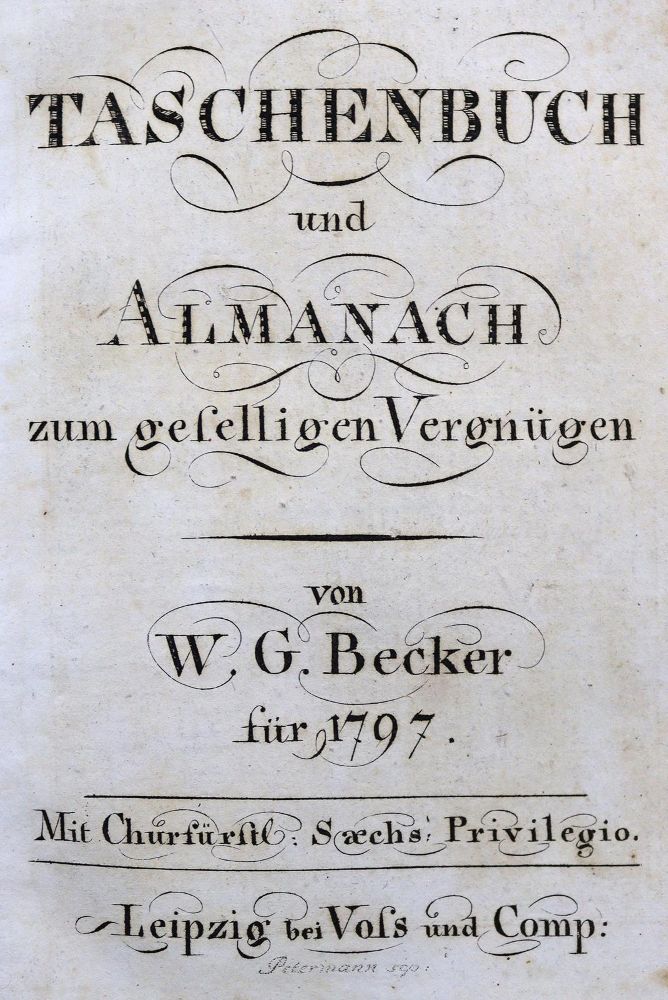 TASCHENBUCH
und
ALMANACH
zum geſelligen Vergnügen
von
W. G. Becker
für 1797.
Mit Churfürſtl: Sæchs: Privilegio.
Leipzig bei Voſs und Comp:
Petermann scp: